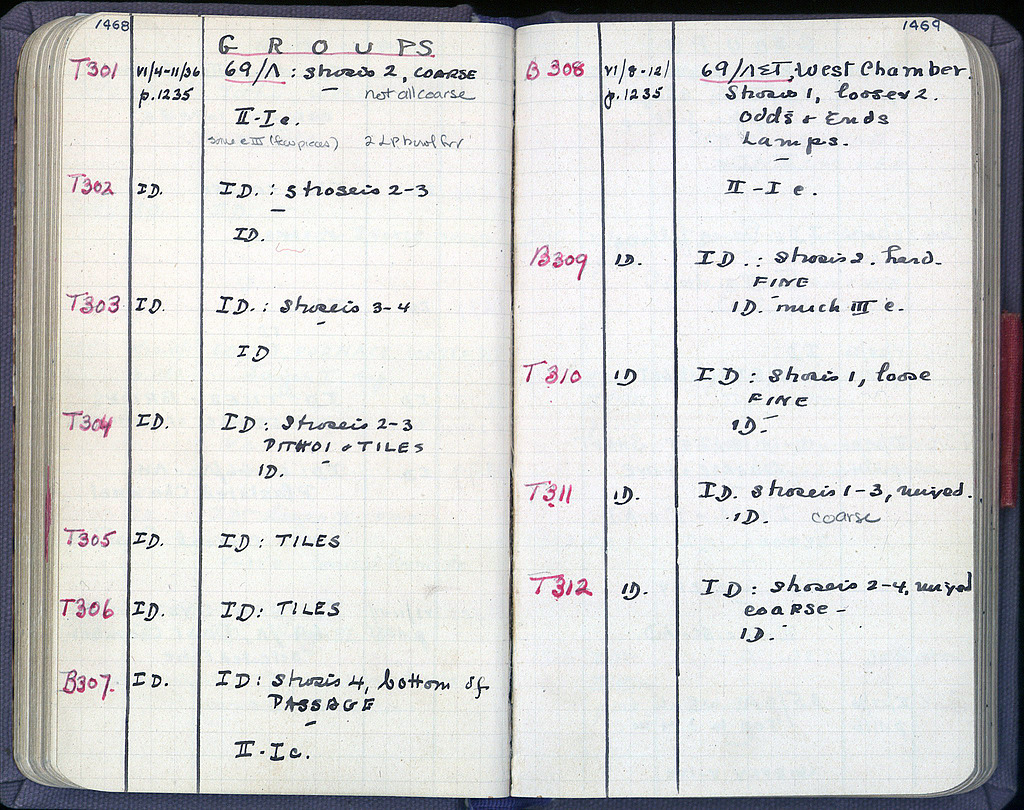 1468
GROUPS
T301 VI/4-11/36 69/Λ: strosis 2, COARSE
p.1235 not all coarse
II-I c.
some c III (few pieces) 2 LP bowl frr
T302 ID. ID.: stroseis 2-3
ID.
T303 ID. ID.: stroseis 3-4
ID
T304 ID. ID: stroseis 2-3
PITHOI & TILES
ID.
T305 ID. ID: TILES
T306 ID. ID: TILES
B307. ID. ID: strosis 4, bottom of
PASSAGE
II-I c.
1469
B308 VI/8-12/ 69/ΛΣΤ, West Chamber.
p.1235 Strosis 1, looser 2.
Odds & Ends
Lamps.
II-I c.
B309 ID. ID.: strosis 2. hard.
FINE
ID. much III c.
T310 ID ID: strosis 1, loose
FINE
ID.
T311 ID. ID. stroseis 1-3, mixed.
ID. coarse
T312 ID. ID: stroseis 2-4, mixed
COARSE-
ID.